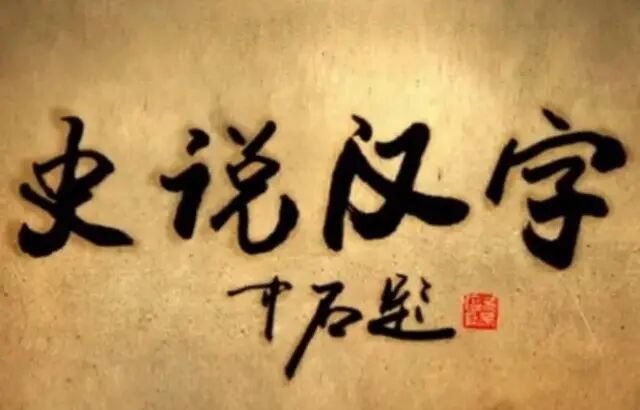 史说汉字
中石题